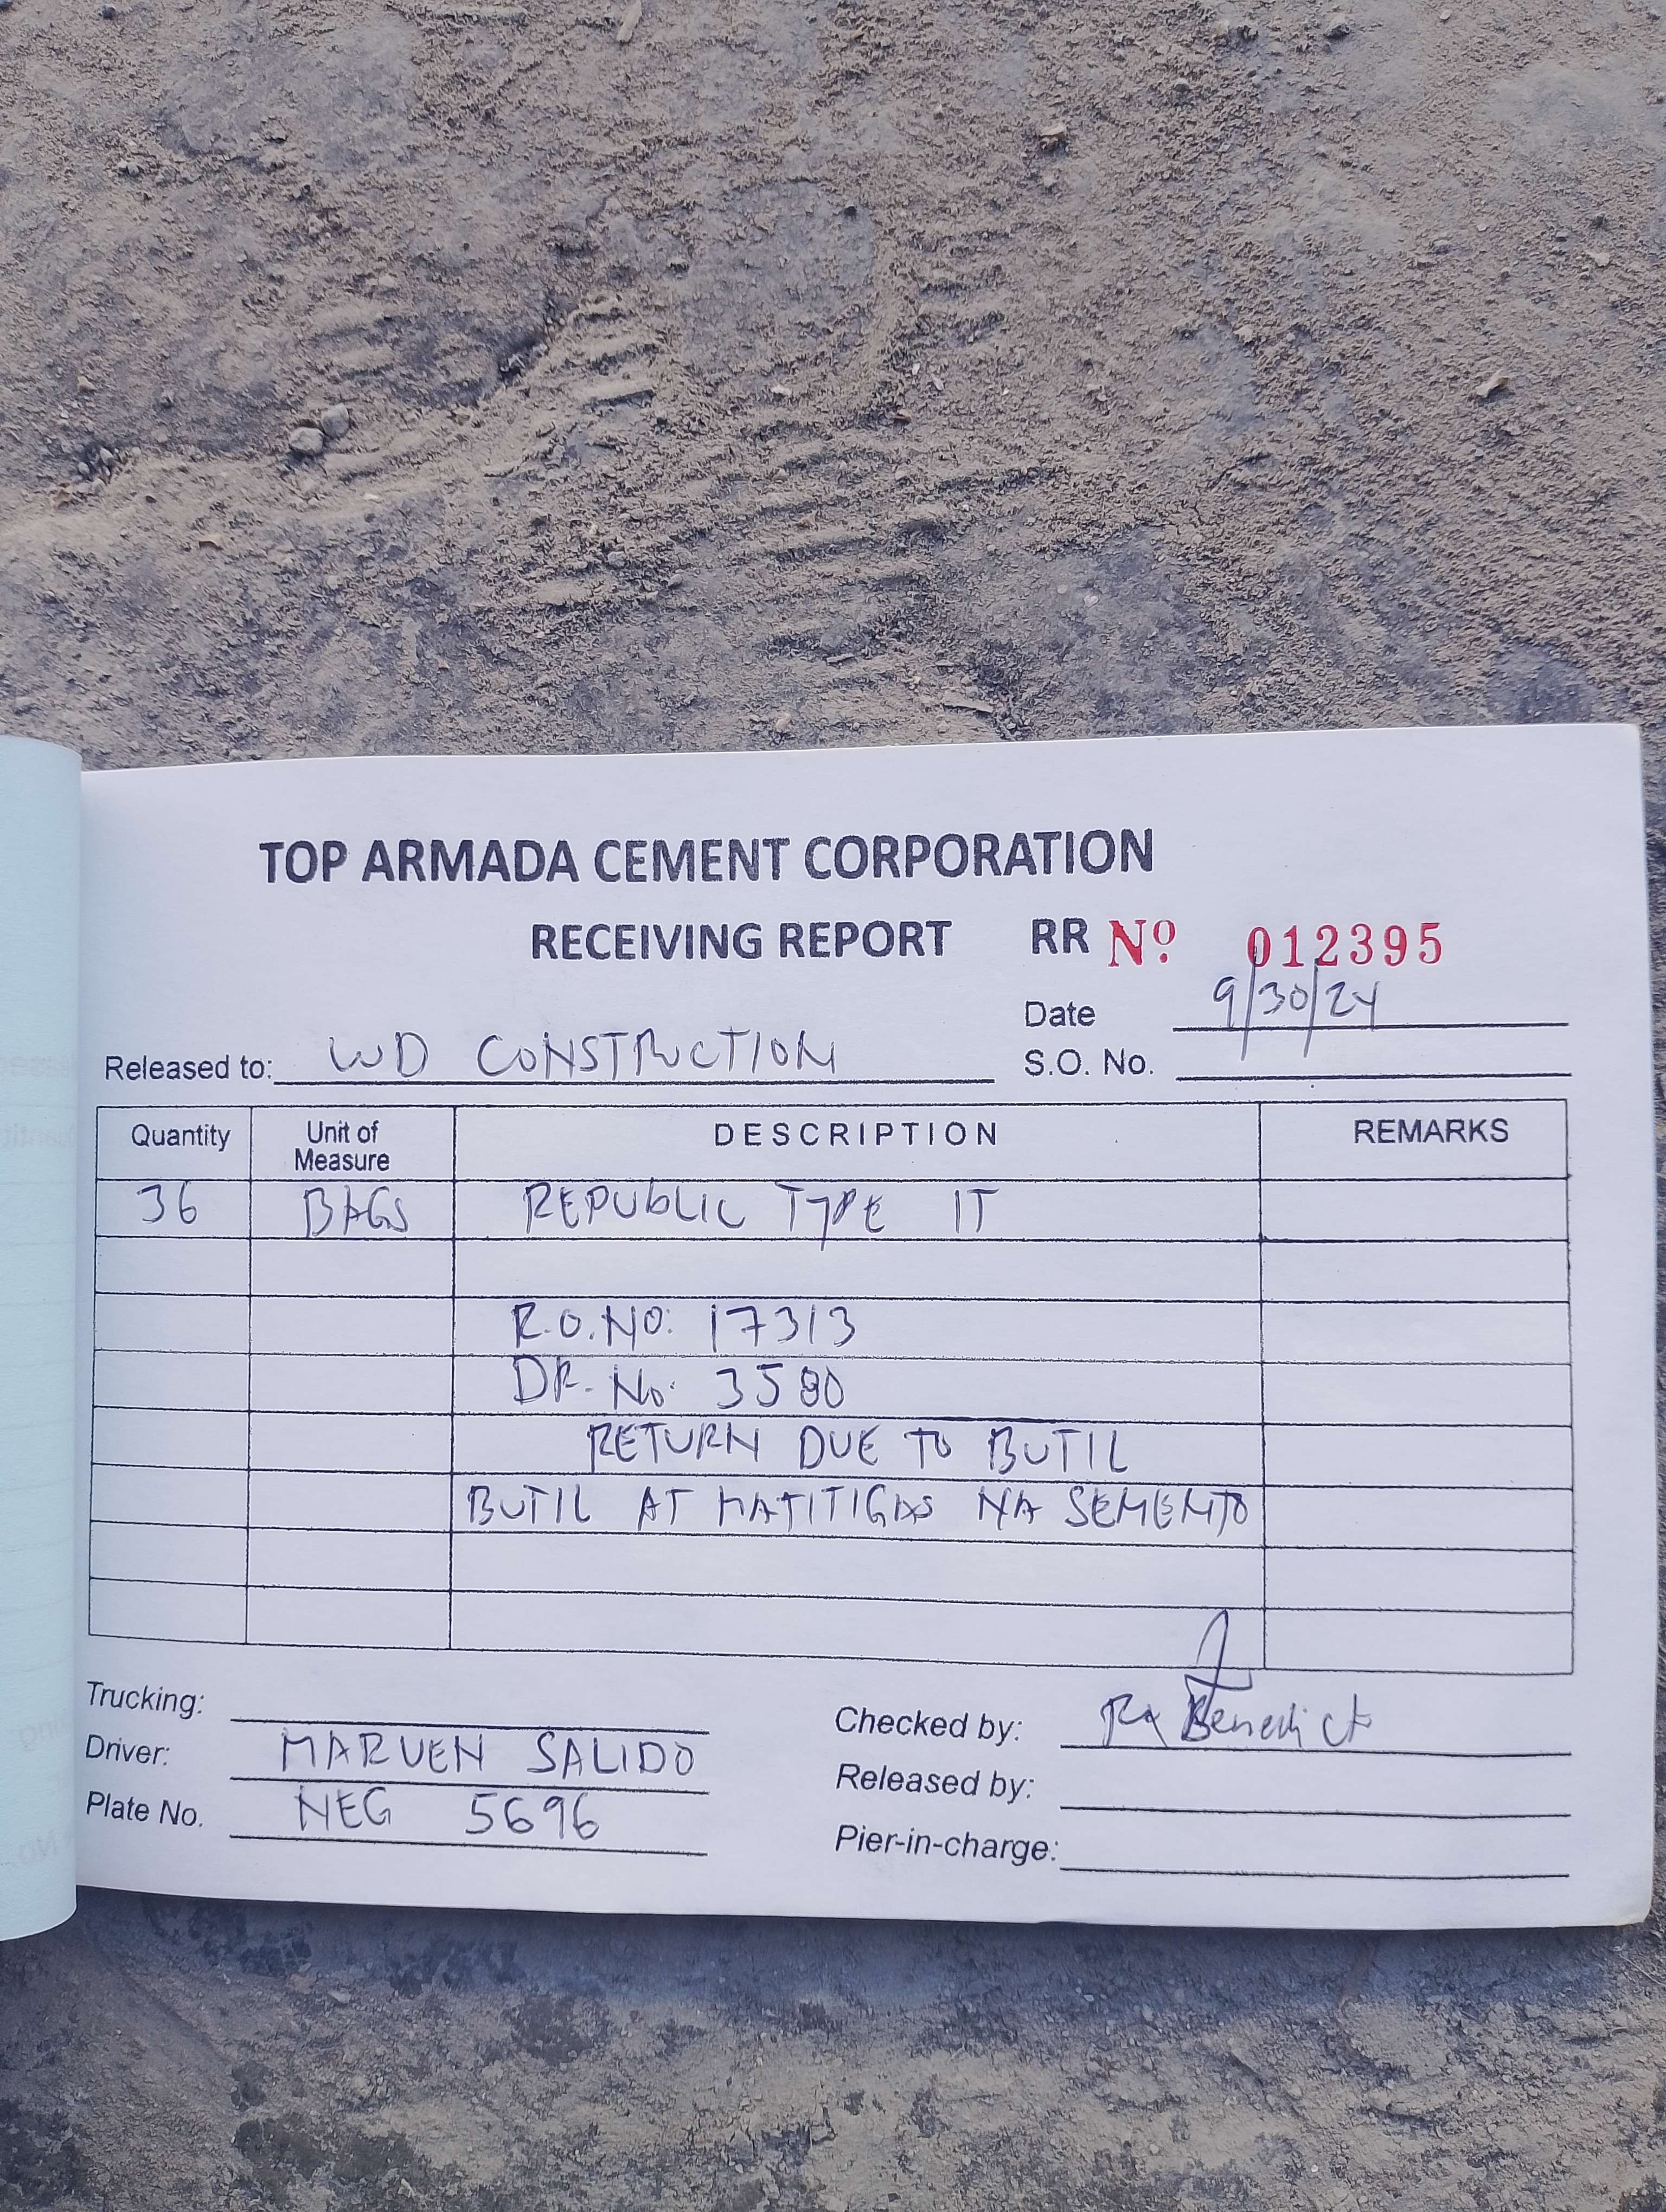 TOP ARMADA CEMENT CORPORATION
RECEIVING REPORT RR Nº 012395
Date 9/30/24
Released to: WD CONSTRUCTION S.O. No.
Quantity Unit of Measure DESCRIPTION REMARKS
36 BAGS REPUBLIC TYPE 1T
R.O. NO: 17313
DR. No: 3580
RETURN DUE TO BUTIL
BUTIL AT MATITIGAS NA SEMENTO
Trucking:
Driver: MARVEN SALIDO
Plate No. NEG 5696
Checked by: Benedict
Released by:
Pier-in-charge: